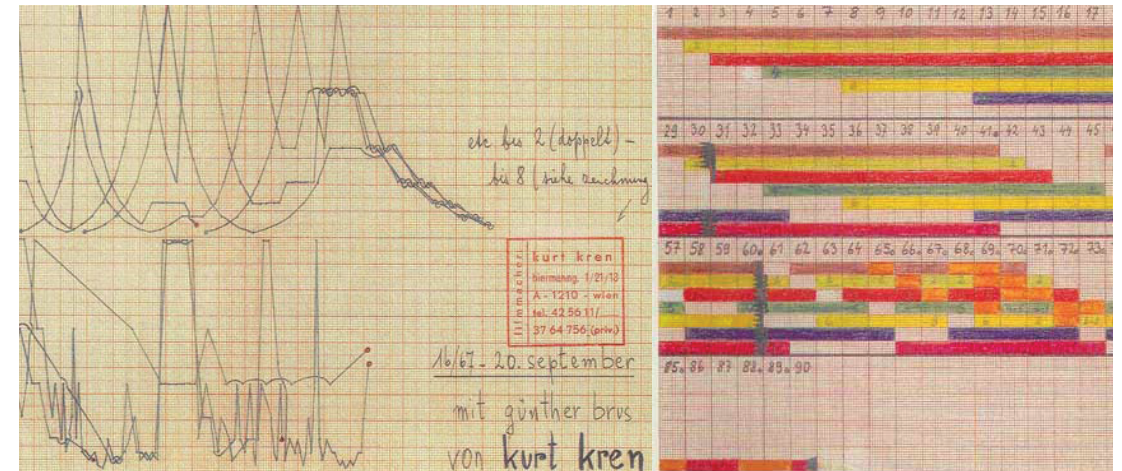 etc bis 2 (doppelt) –
bis 8 (siehe zeichnung
filmmacher
kurt kren
A - 1210 - wien
tel. 42 56 11/
37 64 756 (priv.)
16/67 - 20. september
mit günther brus
von kurt kren
1 2 3 4 5 6 7 8 9 10 11 12 13 14 15 16 17
29 30 31 32 33 34 35 36 37 38 39 40 41. 42 43 44 45
57 58 59 60. 61 62 63 64 65. 66. 67. 68. 69. 70. 71. 72. 73.
85. 86 87 88. 89. 90